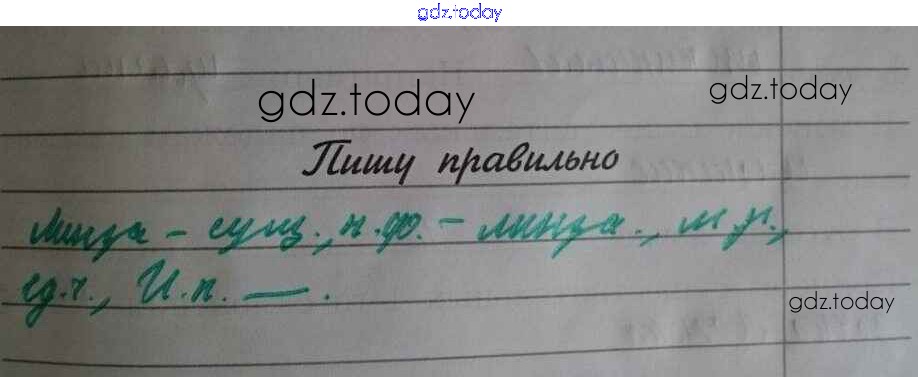 gdz.today
gdz.today
gdz.today
Пишу правильно
– сущ., н.ф. – м.р.,
ед.ч., И.п. — .
gdz.today